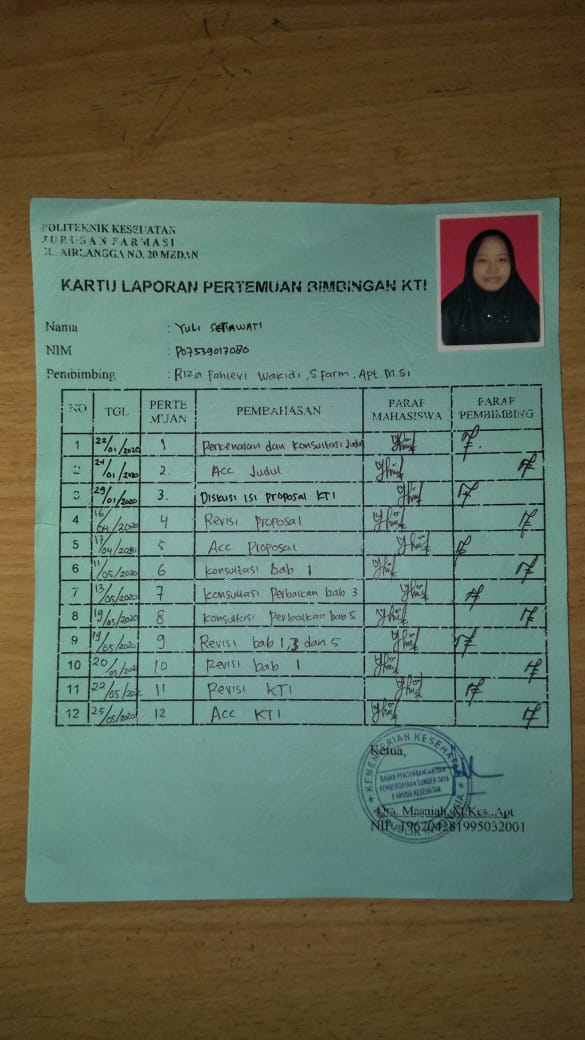 POLITEKNIK KESEHATAN
JURUSAN FARMASI
JL. AIRLANGGA NO. 20 MEDAN
KARTU LAPORAN PERTEMUAN BIMBINGAN KTI
Nama : YULI SETIAWATI
NIM : P07539017080
Pembimbing : Riza Fahlevi Wakidi, S.Farm, Apt. M.Si
NO TGL PERTEMUAN PEMBAHASAN PARAF MAHASISWA PARAF PEMBIMBING
1 22/01/2020 1 Perkenalan dan konsultasi Judul
2 24/01/2020 2. Acc Judul
3 29/01/2020 3. Diskusi isi proposal KTI
4 16/04/2020 4 Revisi Proposal
5 17/04/2020 5 Acc Proposal
6 11/05/2020 6 Konsultasi bab 1
7 13/05/2020 7 Konsultasi Perbaikan bab 3
8 19/05/2020 8 Konsultasi Perbaikan bab 5
9 19/05/2020 9 Revisi bab 1,3 dan 5
10 20/05/2020 10 Revisi bab 1
11 22/05/2020 11 Revisi KTI
12 25/05/2020 12 Acc KTI
Ketua,
KEMENTERIAN KESEHATAN
BADAN PENGEMBANGAN DAN
PEMBERDAYAAN SUMBER DAYA
MANUSIA KESEHATAN
REPUBLIK INDONESIA
Dra. Masniah, M.Kes., Apt
NIP. 196204281995032001